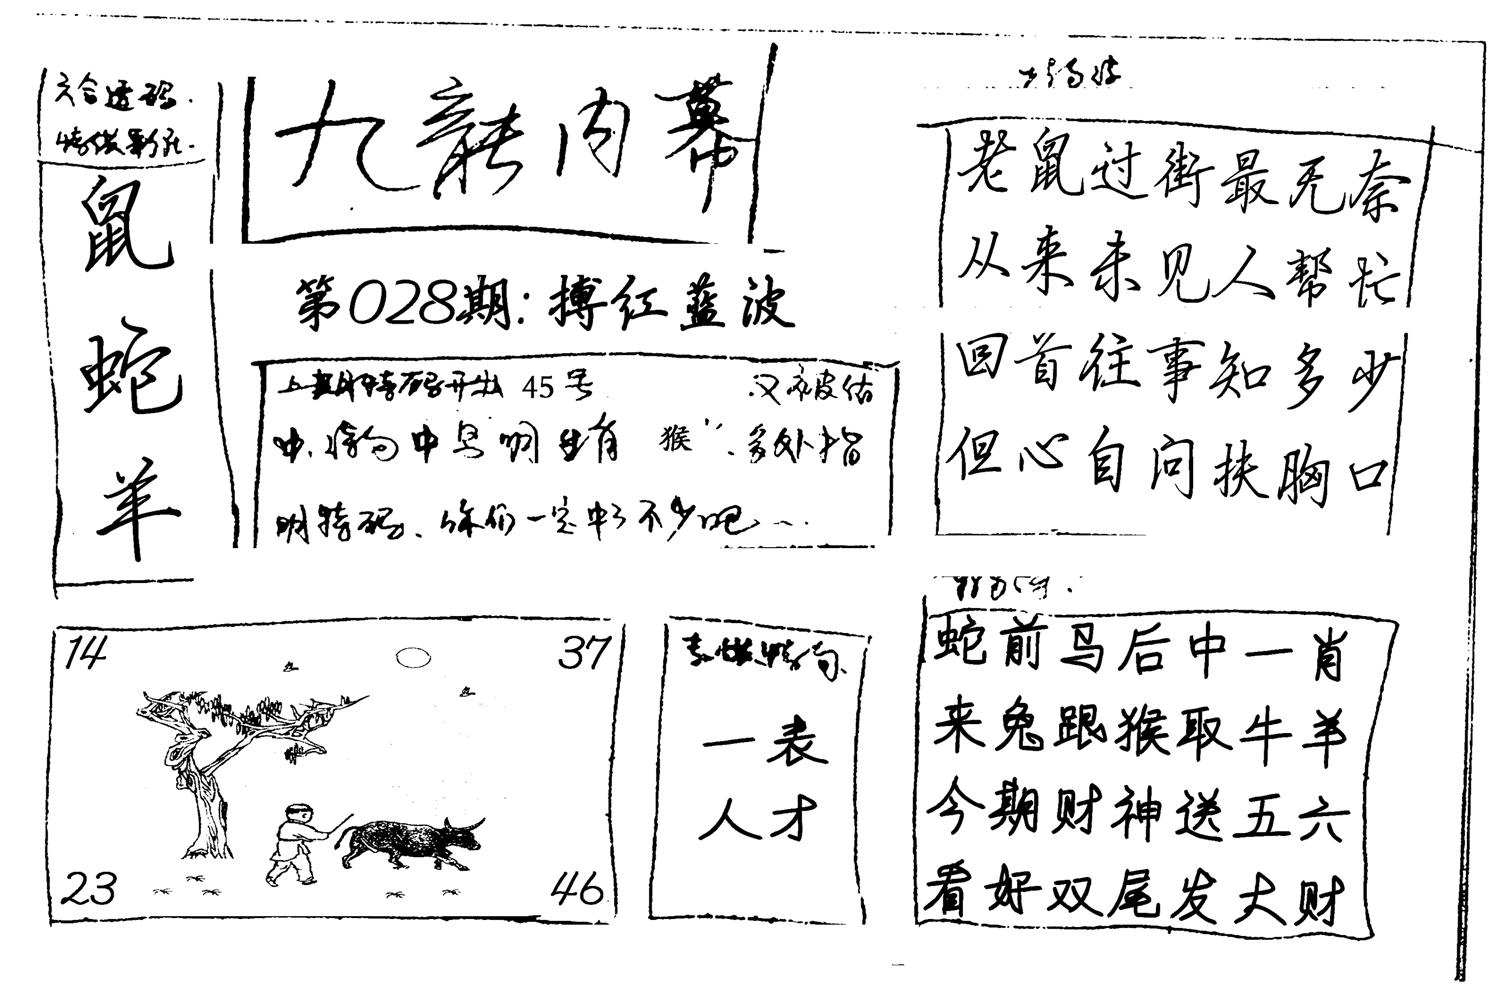 六合透码.
鼠
蛇
羊
九龍内幕
第028期:搏红蓝波
上期特码开出 45号 又被估
中.特句中早明生肖 猴".多处指
明特码、你们一定中了不少吧...
老鼠过街最无奈
从来未见人帮忙
回首往事知多少
但心自问扶胸口
14
37
23
46
一表
人才
蛇前马后中一肖
来兔跟猴取牛羊
今期财神送五六
看好双尾发大财